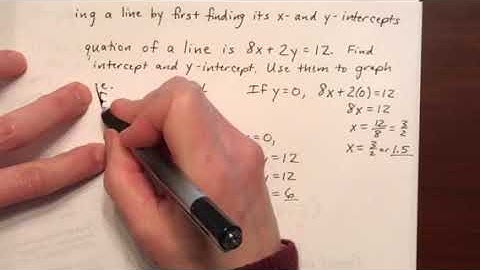 ing a line by first finding its x- and y-intercepts
quation of a line is 8x+2y=12. Find
intercept and y-intercept. Use them to graph
e.
If y=0, 8x+2(0)=12
8x=12
x=12/8=3/2
x=3/2 or 1.5
=0,
y=12
y=12
=6